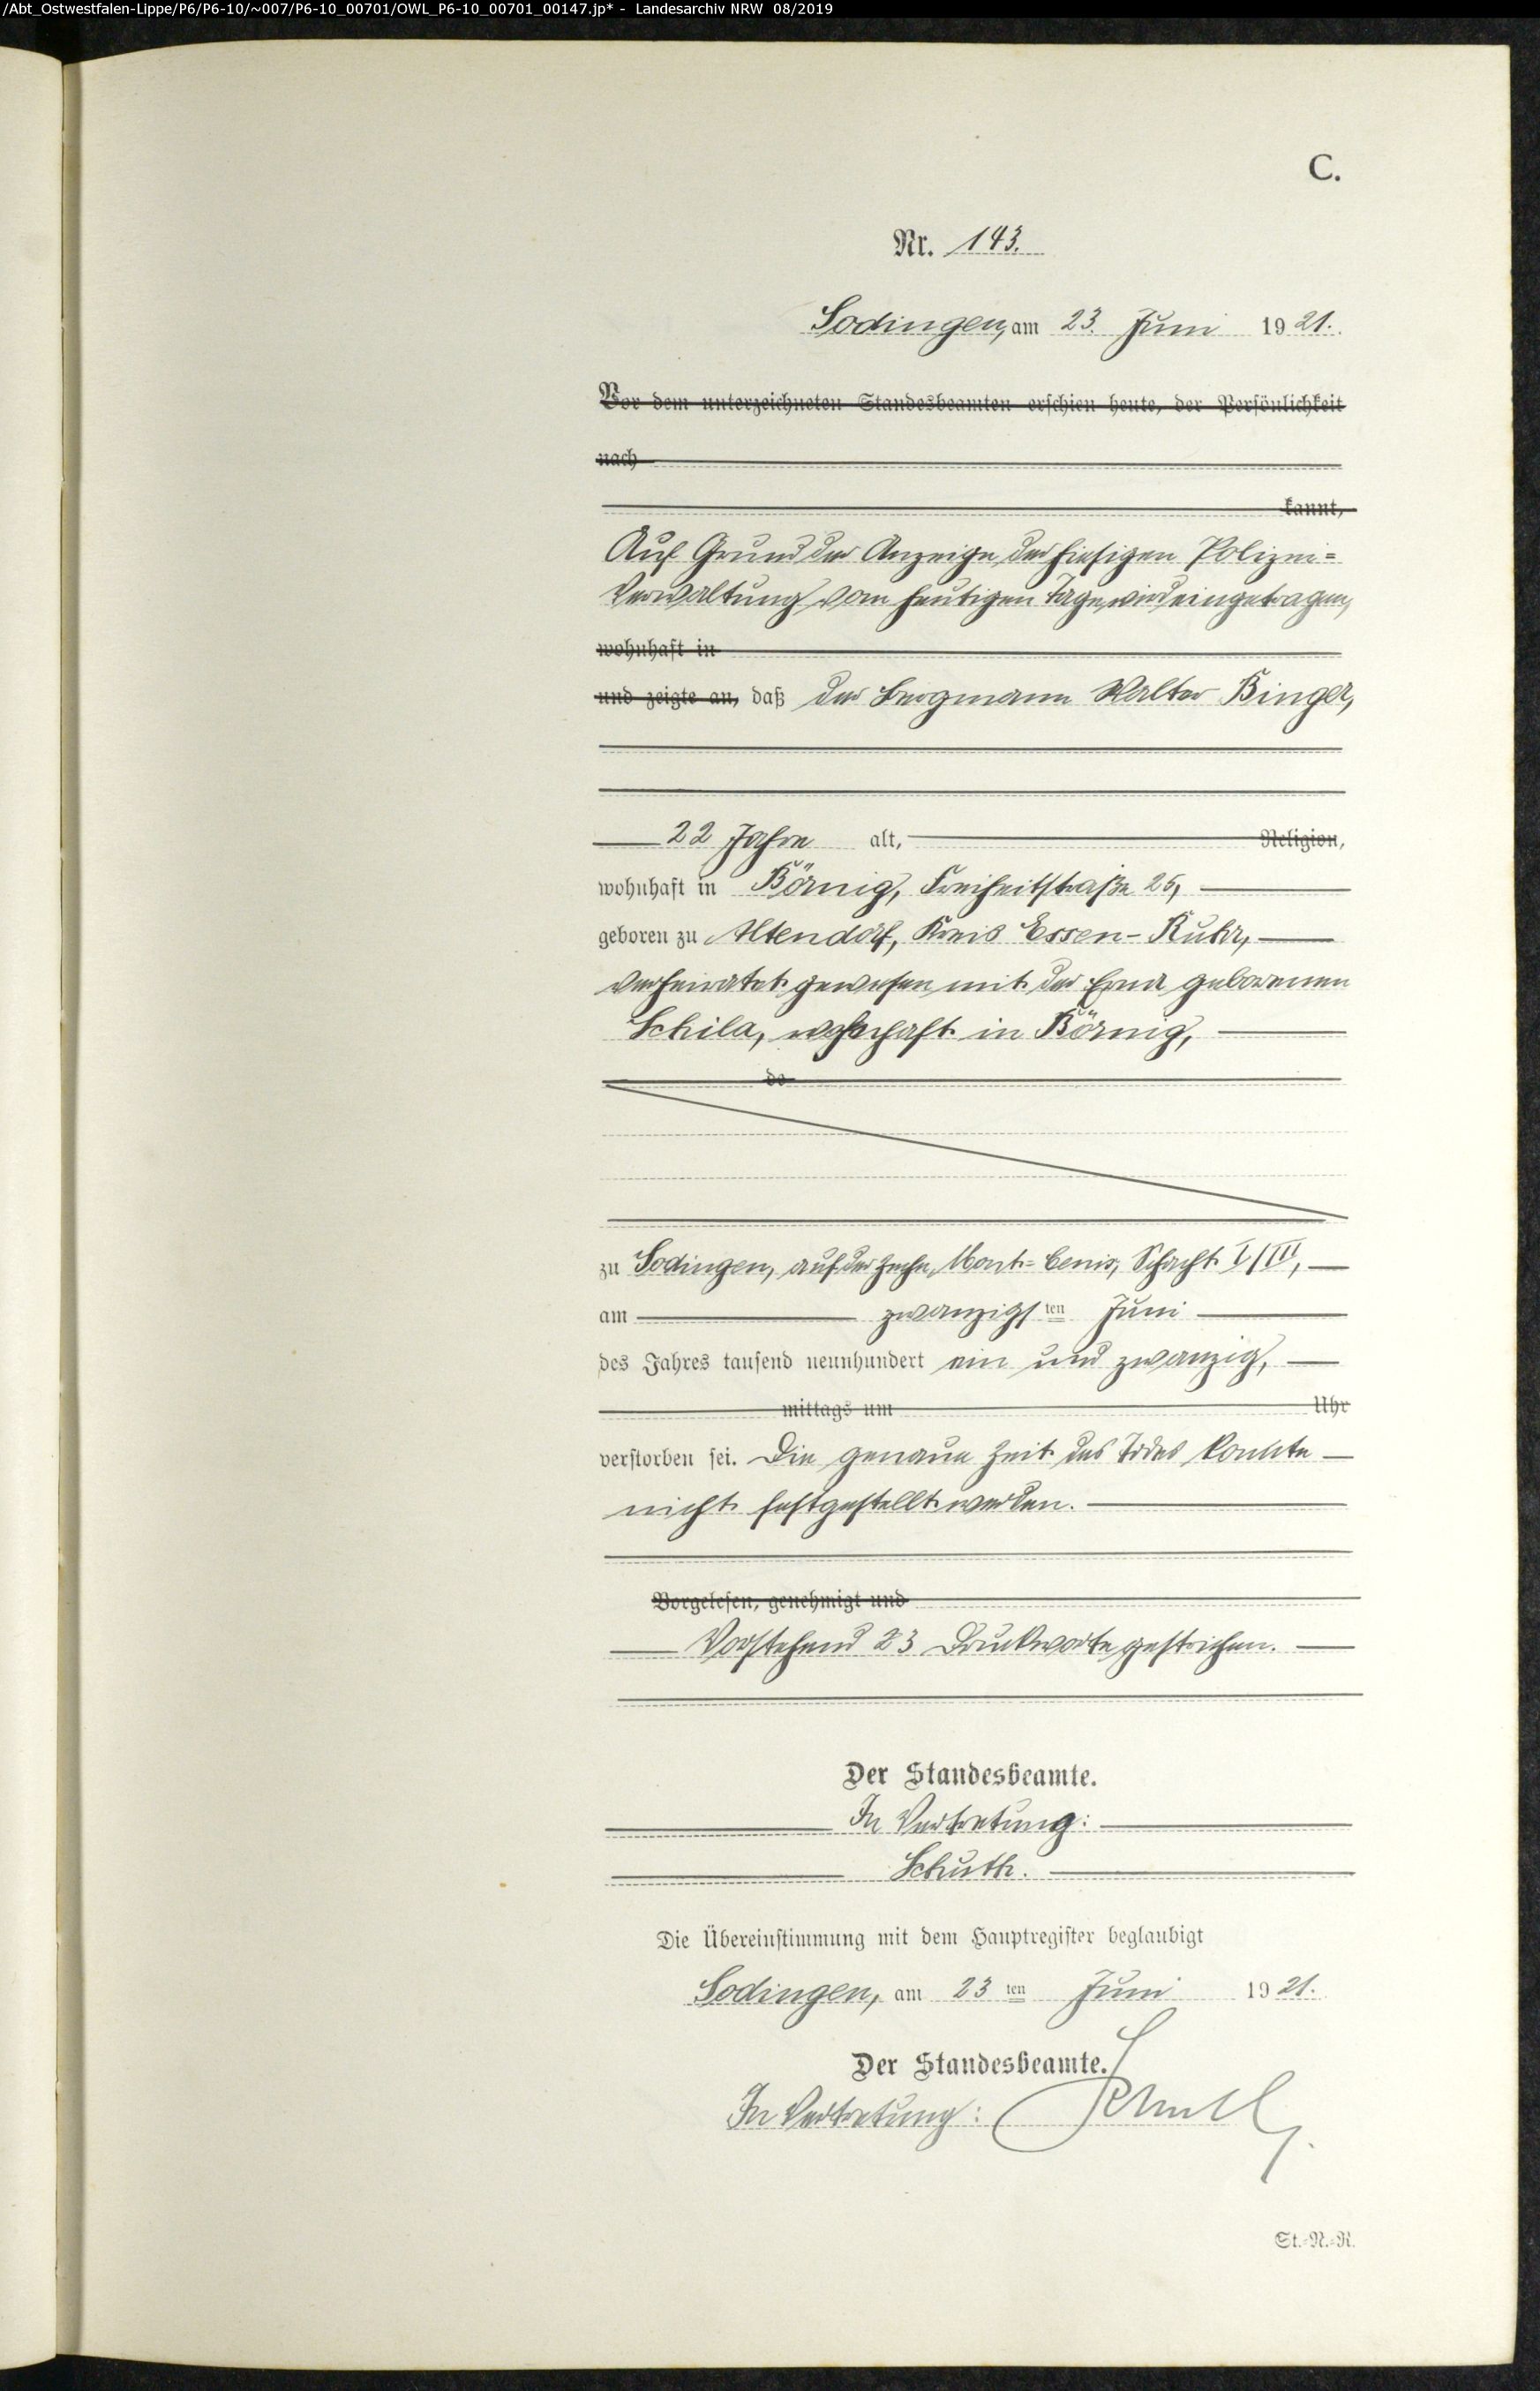 /Abt_Ostwestfalen-Lippe/P6/P6-10/~007/P6-10_00701/OWL_P6-10_00701_00147.jp* - Landesarchiv NRW 08/2019
C.
Nr. 143.
Sodingen, am 23. Juni 1921.
Vor dem unterzeichneten Standesbeamten erschien heute, der Persönlichkeit
nach
kannt,
Auf Grund der Anzeige der hiesigen Polizei=
Verwaltung vom heutigen Tage wird eingetragen,
wohnhaft in
und zeigte an, daß der Bergmann Walter Binger,
22 Jahre alt, Religion,
wohnhaft in Börnig, Freiheitstraße 25,
geboren zu Altendorf, Kreis Essen-Ruhr,
verheiratet gewesen mit der Erna geborenen
Schila, wohnhaft in Börnig,
zu Sodingen, auf der Zeche Mont-Cenis, Schacht I/III,
am zwanzigsten Juni
des Jahres tausend neunhundert ein und zwanzig,
mittags um Uhr
verstorben sei. Die genaue Zeit des Todes konnte
nicht festgestellt werden.
Vorgelesen, genehmigt und
Vorstehend 23 Druckworte gestrichen.
Der Standesbeamte.
In Vertretung:
Schuth.
Die Übereinstimmung mit dem Hauptregister beglaubigt
Sodingen, am 23ten Juni 1921.
Der Standesbeamte.
In Vertretung: Schuth
St.-N.-R.